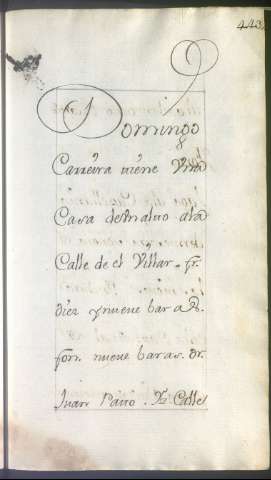 443
Domingo
Carreira tiene Una
Casa de Analvo a la
Calle de el Villar. fr.
diez y nueve baras.
fon. nueve baras. dr.
Juan Patto. Yz Calle